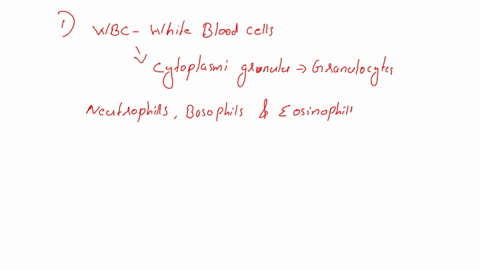 1) WBC - White Blood cells
Cytoplasmi granule → Granulocytes
Neutrophills, Basophils & Eosinophill